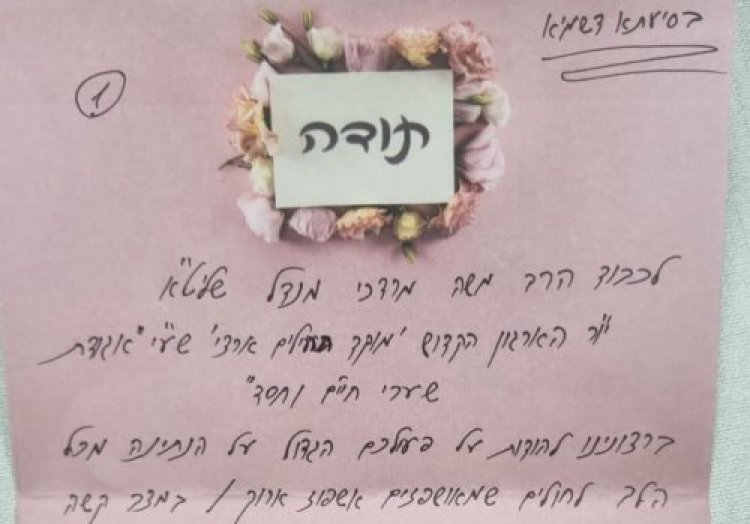 בסיעתא דשמיא
1
תודה
לכבוד הרב משה מרדכי מנדל שליט"א
יו"ר הארגון הקדוש 'מוקד תהילים ארצי' שע"י "אגודת
שערי חיים וחסד"
ברצונינו להודות על פעלכם הגדול על הנתינה מכל
הלב לחולים שמאושפזים אשפוז ארוך / במצב קשה